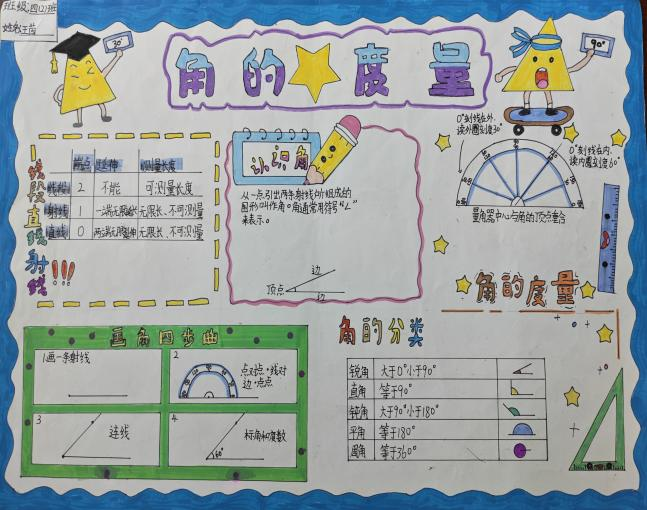 班级:四(2)班
姓名:王茵
30°
角的度量
90°
线段直线射线!!!
端点 延伸 测量长度
线段 2 不能 可测量长度
射线 1 一端无限延长 无限长、不可测量
直线 0 两端无限延伸 无限长、不可测量
认识角
从一点引出两条射线所组成的
图形叫作角。角通常用符号“∠”
来表示。
边
顶点
边
0°刻线在外,
读外圈刻度30°
0°刻线在内,
读内圈刻度60°
量角器中心与角的顶点重合
角的度量
画角四步曲
1画一条射线
2
点对点·线对
边·点点
3
连线
4
标角和度数
60°
角的分类
锐角 大于0°小于90°
直角 等于90°
钝角 大于90°小于180°
平角 等于180°
周角 等于360°